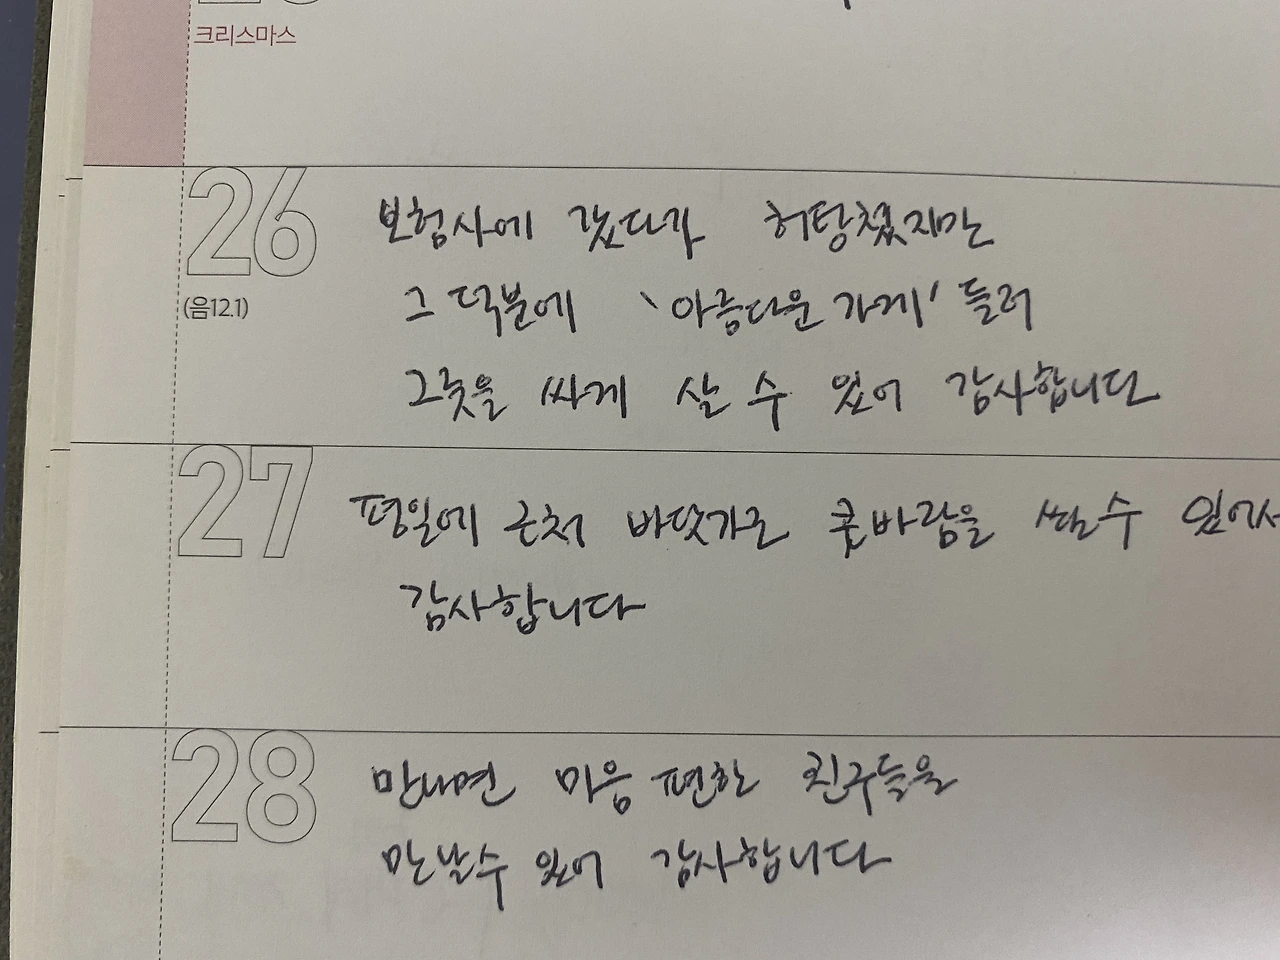 크리스마스
26
보험사에 갔다가 허탕쳤지만
(음12.1)
그 덕분에 '아름다운 가게' 들러
그릇을 싸게 살 수 있어 감사합니다
27
평일에 근처 바닷가로 콧바람을 쐴 수 있어서
감사합니다
28
만나면 마음 편한 친구들을
만날수 있어 감사합니다